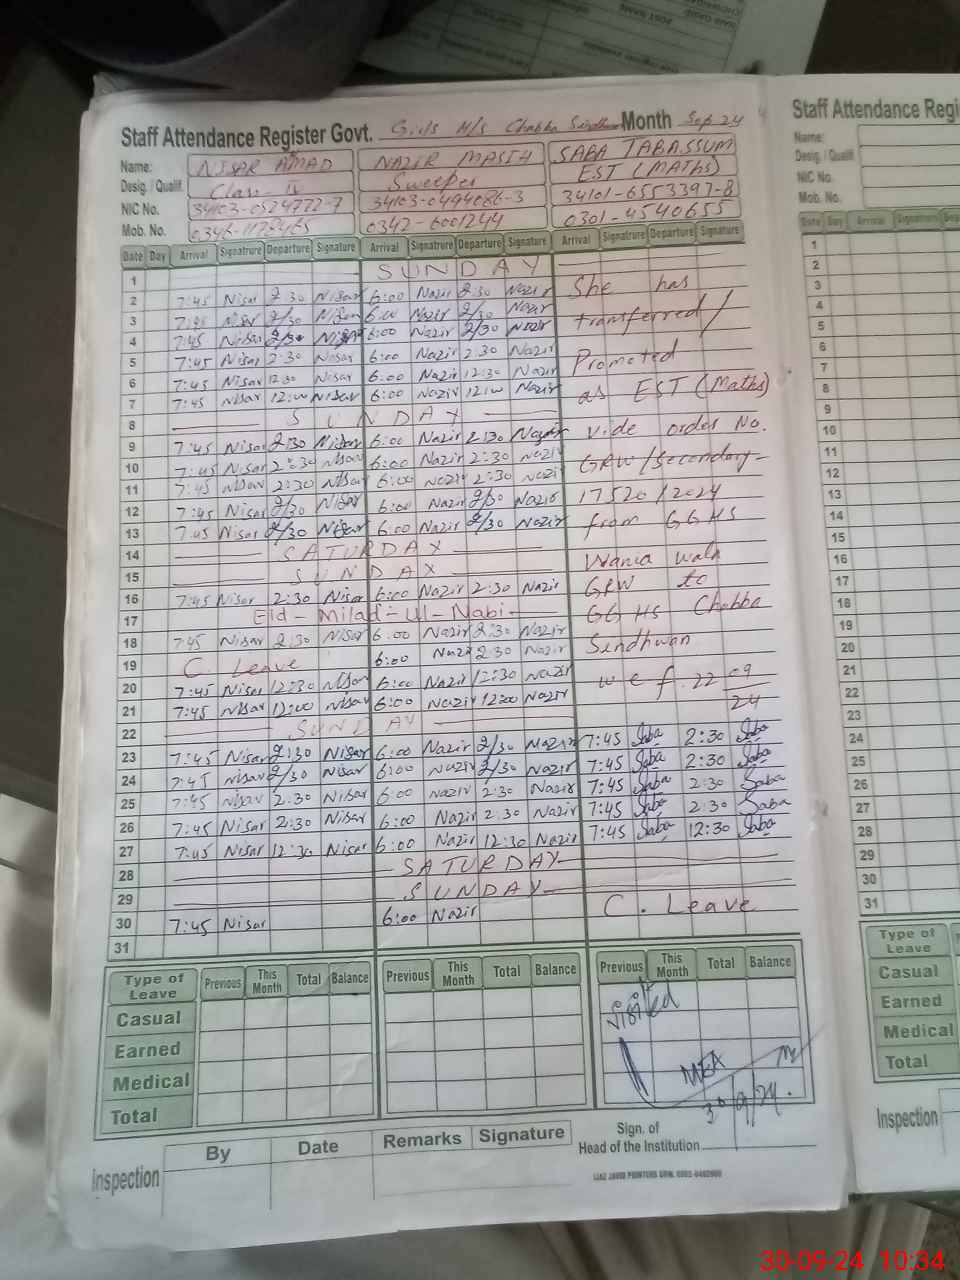 Staff Attendance Register Govt. Girls H/S Chabba Sindhwan Month Sep 24
Name: NISAR AHMAD NAZIR MASIH SABA TABASSUM
Desig. / Qualif. Class-IV Sweeper EST (MATHS)
NIC No. 34103-0524772-7 34103-0494086-3 34101-6553397-8
Mob. No. 0342-6001244 0301-4540655
Date Day Arrival Signatrure Departure Signature Arrival Signatrure Departure Signature Arrival Signatrure Departure Signature
1 SUNDAY
2 7:45 Nisar 2:30 Nisar 6:00 Nazir 2:30 Nazir She has
3 7:45 Nisar 2/30 Nisar 6:00 Nazir 2/30 Nazir transferred/
4 7:45 Nisar 2/30 Nisar 6:00 Nazir 2/30 Nazir
5 7:45 Nisar 2:30 Nisar 6:00 Nazir 2:30 Nazir Promoted
6 7:45 Nisar 12:30 Nisar 6:00 Nazir 12:30 Nazir
7 7:45 Nisar 12:00 Nisar 6:00 Nazir 12:00 Nazir as EST (Maths)
8 SUNDAY
9 7:45 Nisar 2:30 Nisar 6:00 Nazir 2:30 Nazir vide order No.
10 7:45 Nisar 2:30 Nisar 6:00 Nazir 2:30 Nazir
11 7:45 Nisar 2:30 Nisar 6:00 Nazir 2:30 Nazir GRW/Secondary-
12 7:45 Nisar 2/30 Nisar 6:00 Nazir 2/30 Nazir 17520/2024
13 7:45 Nisar 2/30 Nisar 6:00 Nazir 2/30 Nazir from GGHS
14 SATURDAY
15 SUNDAY Wania wala
16 7:45 Nisar 2:30 Nisar 6:00 Nazir 2:30 Nazir GRW to
17 Eid-Milad-Ul-Nabi- GGHS Chabba
18 7:45 Nisar 2:30 Nisar 6:00 Nazir 2:30 Nazir Sindhwan
19 C. Leave 6:00 Nazir 2:30 Nazir
20 7:45 Nisar 12:30 Nisar 6:00 Nazir 12:30 Nazir w e f. 22 09
21 7:45 Nisar 12:00 Nisar 6:00 Nazir 12:00 Nazir 24
22 SUNDAY
23 7:45 Nisar 2:30 Nisar 6:00 Nazir 2/30 Nazir 7:45 Saba 2:30 Saba
24 7:45 Nisar 2/30 Nisar 6:00 Nazir 2/30 Nazir 7:45 Saba 2:30 Saba
25 7:45 Nisar 2:30 Nisar 6:00 Nazir 2:30 Nazir 7:45 Saba 2:30 Saba
26 7:45 Nisar 2:30 Nisar 6:00 Nazir 2:30 Nazir 7:45 Saba 2:30 Saba
27 7:45 Nisar 12:30 Nisar 6:00 Nazir 12:30 Nazir 7:45 Saba 12:30 Saba
28 SATURDAY
29 SUNDAY
30 7:45 Nisar 6:00 Nazir C. Leave
31
Type of Leave Previous This Month Total Balance Previous This Month Total Balance Previous This Month Total Balance
Casual
Earned
Medical
Total
Visited
MEA
30/9/24.
Inspection By Date Remarks Signature
Sign. of
Head of the Institution
Staff Attendance Regi
Name:
Desig. / Qualif.
NIC No.
Mob. No.
Date Day Arrival Signatrure
1
2
3
4
5
6
7
8
9
10
11
12
13
14
15
16
17
18
19
20
21
22
23
24
25
26
27
28
29
30
31
Type of Leave
Casual
Earned
Medical
Total
Inspection
30-09-24 10:34